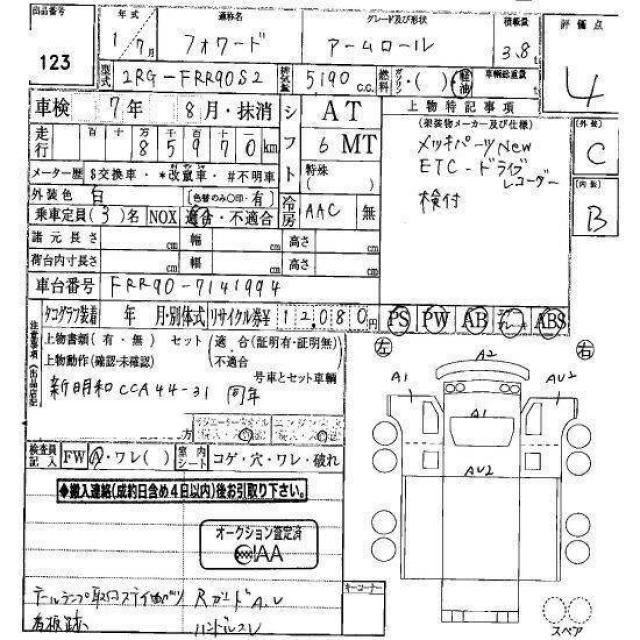 出品番号 年式 通称名 グレード及び形状 積載量 評価点
123 1/7月 フォワード アームロール 3.8t 4
型式 2RG-FRR90S2 排気量 5190 c.c. 燃料 ガソリン・( )・軽油 車輌総重量 t
車検 7年 8月・抹消 シフト AT 上物特記事項
走行 百 十 万 千 百 十 km 6 MT (架装物メーカー及び仕様) [外装]
85970 メッキパーツNew C
メーター歴 $交換車・*改竄車・#不明車 特殊( ) ETC-ドライブレコーダー
外装色 白 [色替のみ○印・有] 検付 [内装]
乗車定員(3)名 NOX 適合・不適合 冷房 AAC 無 B
諸元長さ cm 幅 cm 高さ cm
荷台内寸長さ cm 幅 cm 高さ cm
車台番号 FRR90-7141994
タコグラフ装着 年 月・別体式 リサイクル券¥ 12,080円 PS PW AB ABS
注意事項(出品店記
上物書類(有・無) セット(適合(証明有・証明無)
上物動作(確認・未確認) 不適合
号車とセット車輌
左 右
新明和CCA44-31 同年
A2
A1 AU2
A1
AU2
方
検査員記入 FW A・ワレ( ) 室内シート コゲ・穴・ワレ・破れ
◆搬入連絡(成約日含め4日以内)後お引取り下さい。
オークション査定済
IAA
キーコーナー
テールランプ取口ステイ曲サビ RガードAU
看板跡 ハンドルスレ
スペア